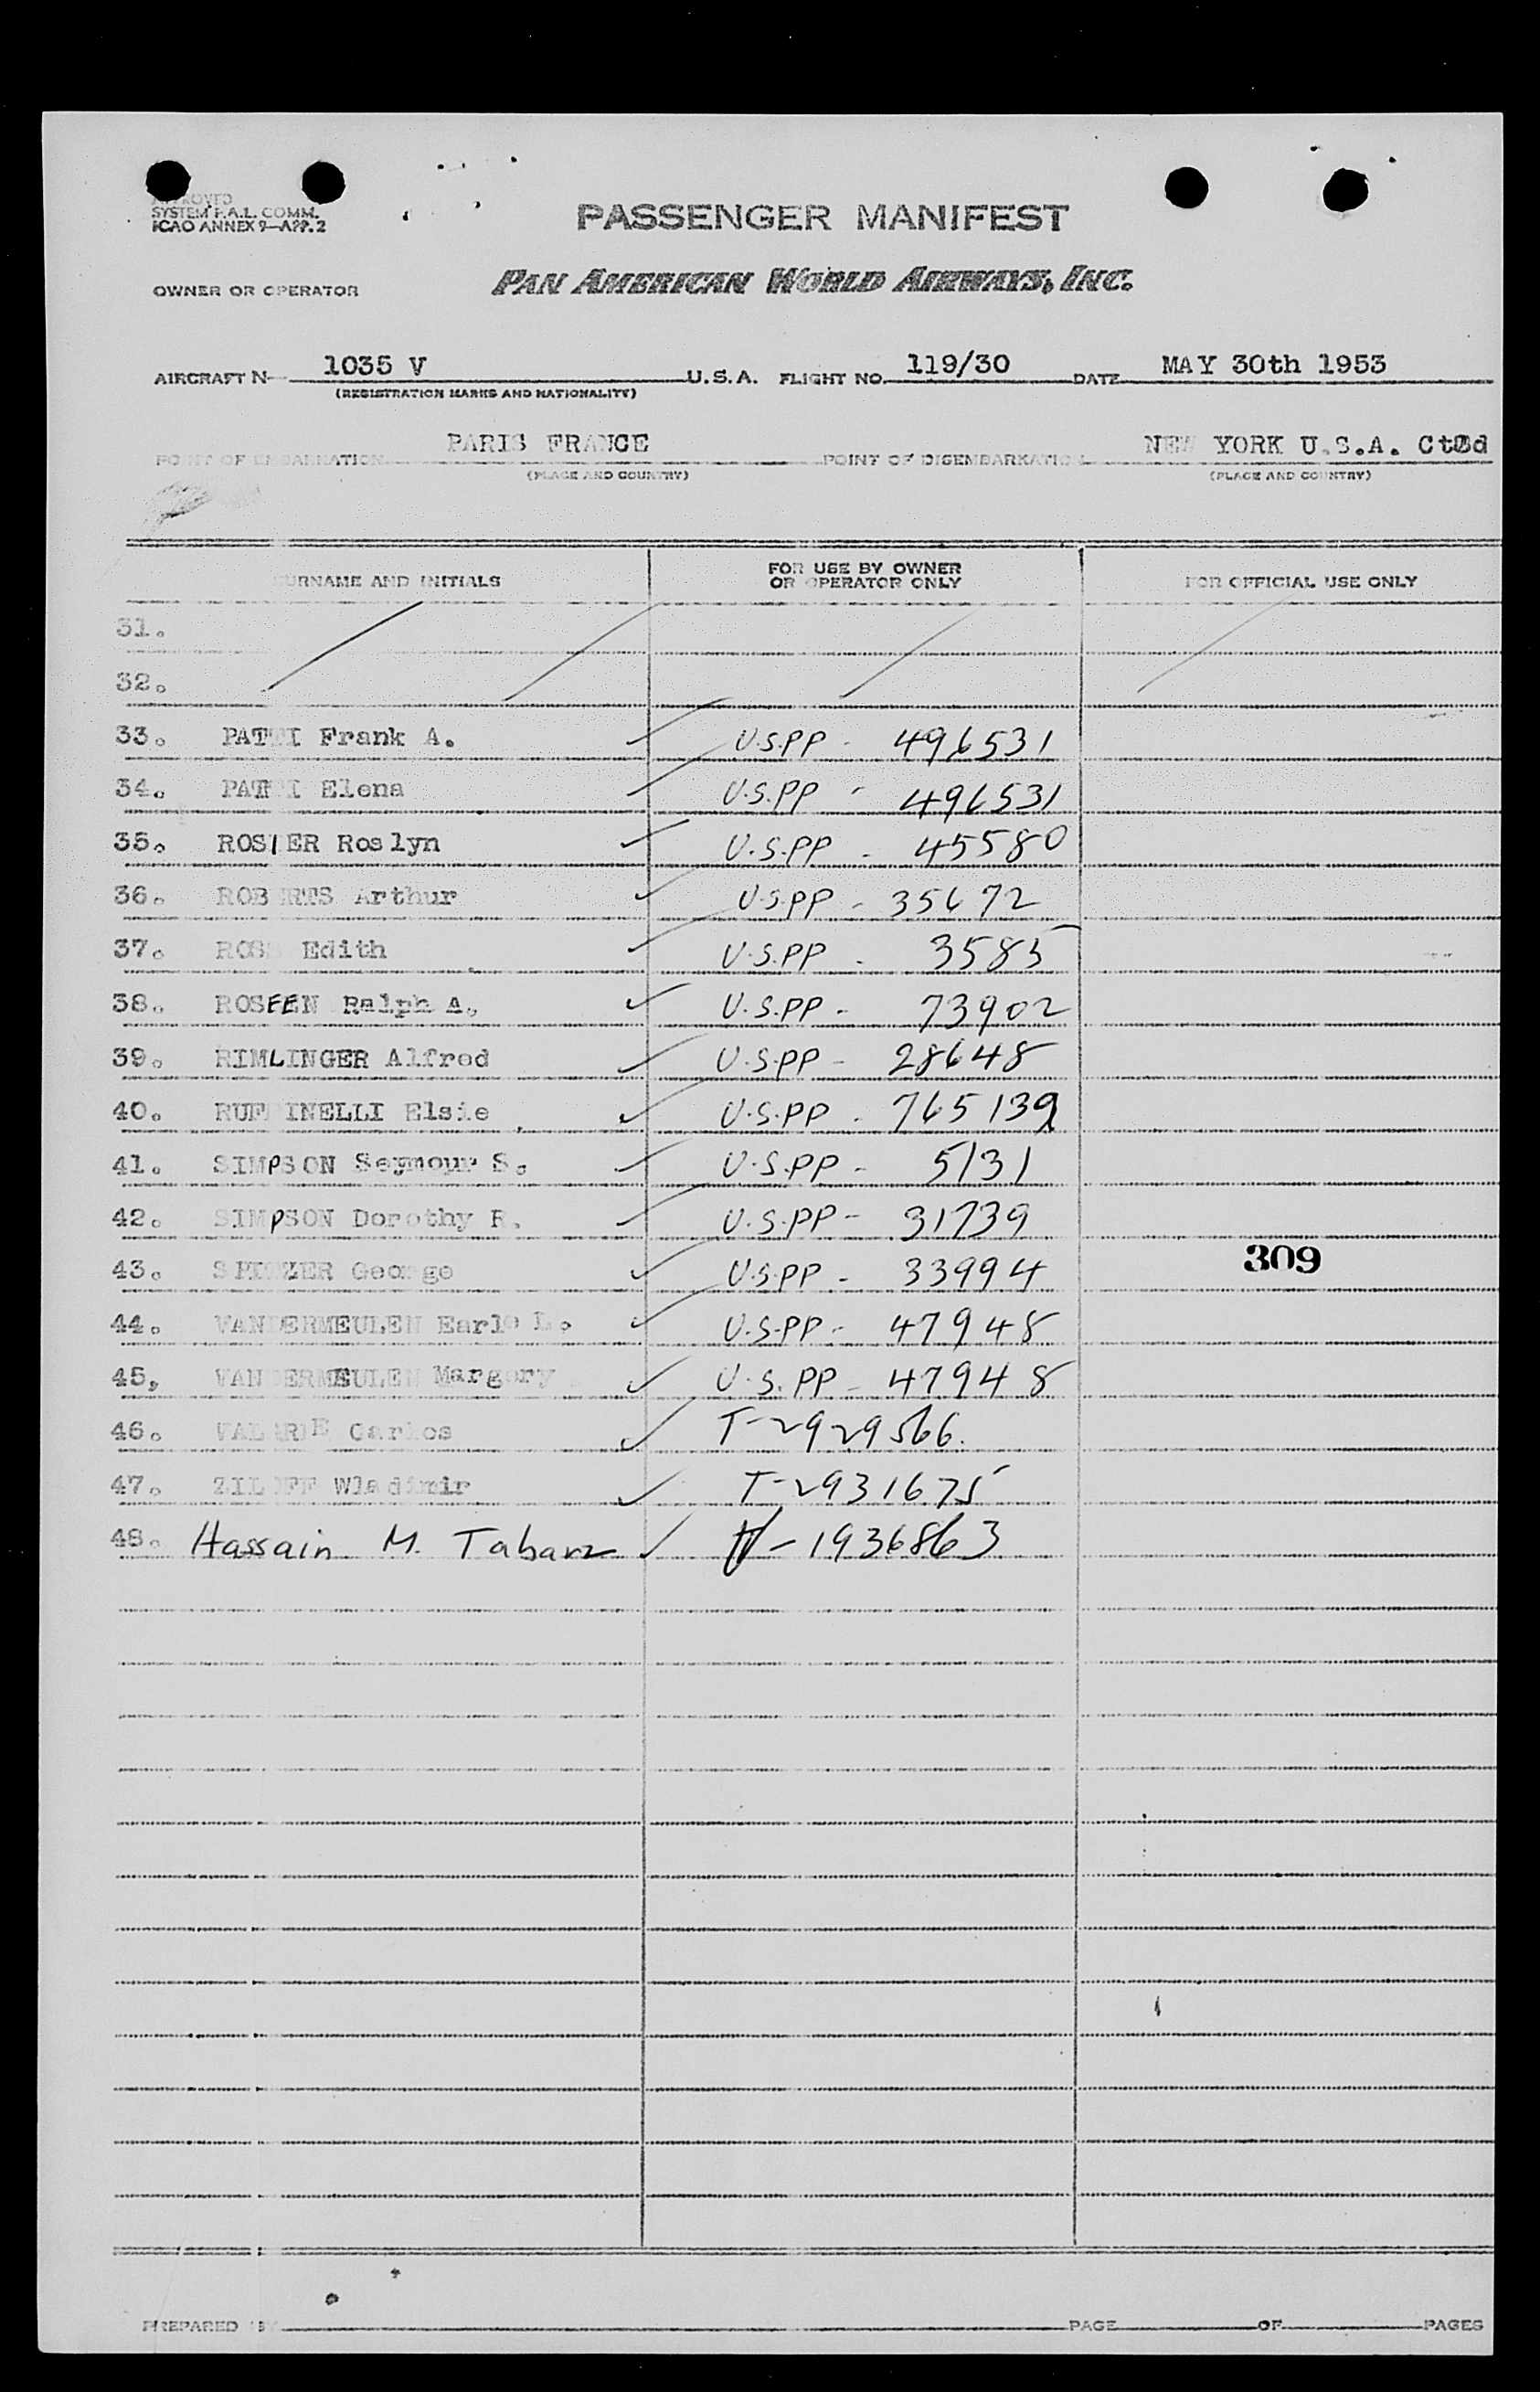 APPROVED
SYSTEM F.A.L. COMM.
ICAO ANNEX 9—APP. 2
PASSENGER MANIFEST
OWNER OR OPERATOR PAN AMERICAN WORLD AIRWAYS, INC.
AIRCRAFT N- 1035 V U.S.A. FLIGHT NO. 119/30 DATE MAY 30th 1953
(REGISTRATION MARKS AND NATIONALITY)
POINT OF EMBARKATION PARIS FRANCE POINT OF DISEMBARKATION NEW YORK U.S.A.
(PLACE AND COUNTRY) (PLACE AND COUNTRY)
SURNAME AND INITIALS FOR USE BY OWNER OR OPERATOR ONLY FOR OFFICIAL USE ONLY
31.
32.
33. Frank A. U.S.PP - 496531
34. Elena U.S.PP - 496531
35. Roslyn U.S.PP - 45580
36. ROBERTS Arthur U.S.PP - 35672
37. ROSS Edith U.S.PP - 3585
38. ROSEEN Ralph A. U.S.PP - 73902
39. RIMLINGER Alfred U.S.PP - 28648
40. RUFFINELLI Elsie U.S.PP - 765139
41. SIMPSON Seymour S. U.S.PP - 5131
42. SIMPSON Dorothy R. U.S.PP - 31739
43. George U.S.PP - 33994
309
44. VANDERMEULEN Earle L. U.S.PP - 47948
45. VANDERMEULEN Margery U.S.PP - 47948
46. Carlos T-2929566.
47. Wladimir T-2931675
48. Hassain M. 1936863
PREPARED BY PAGE OF PAGES